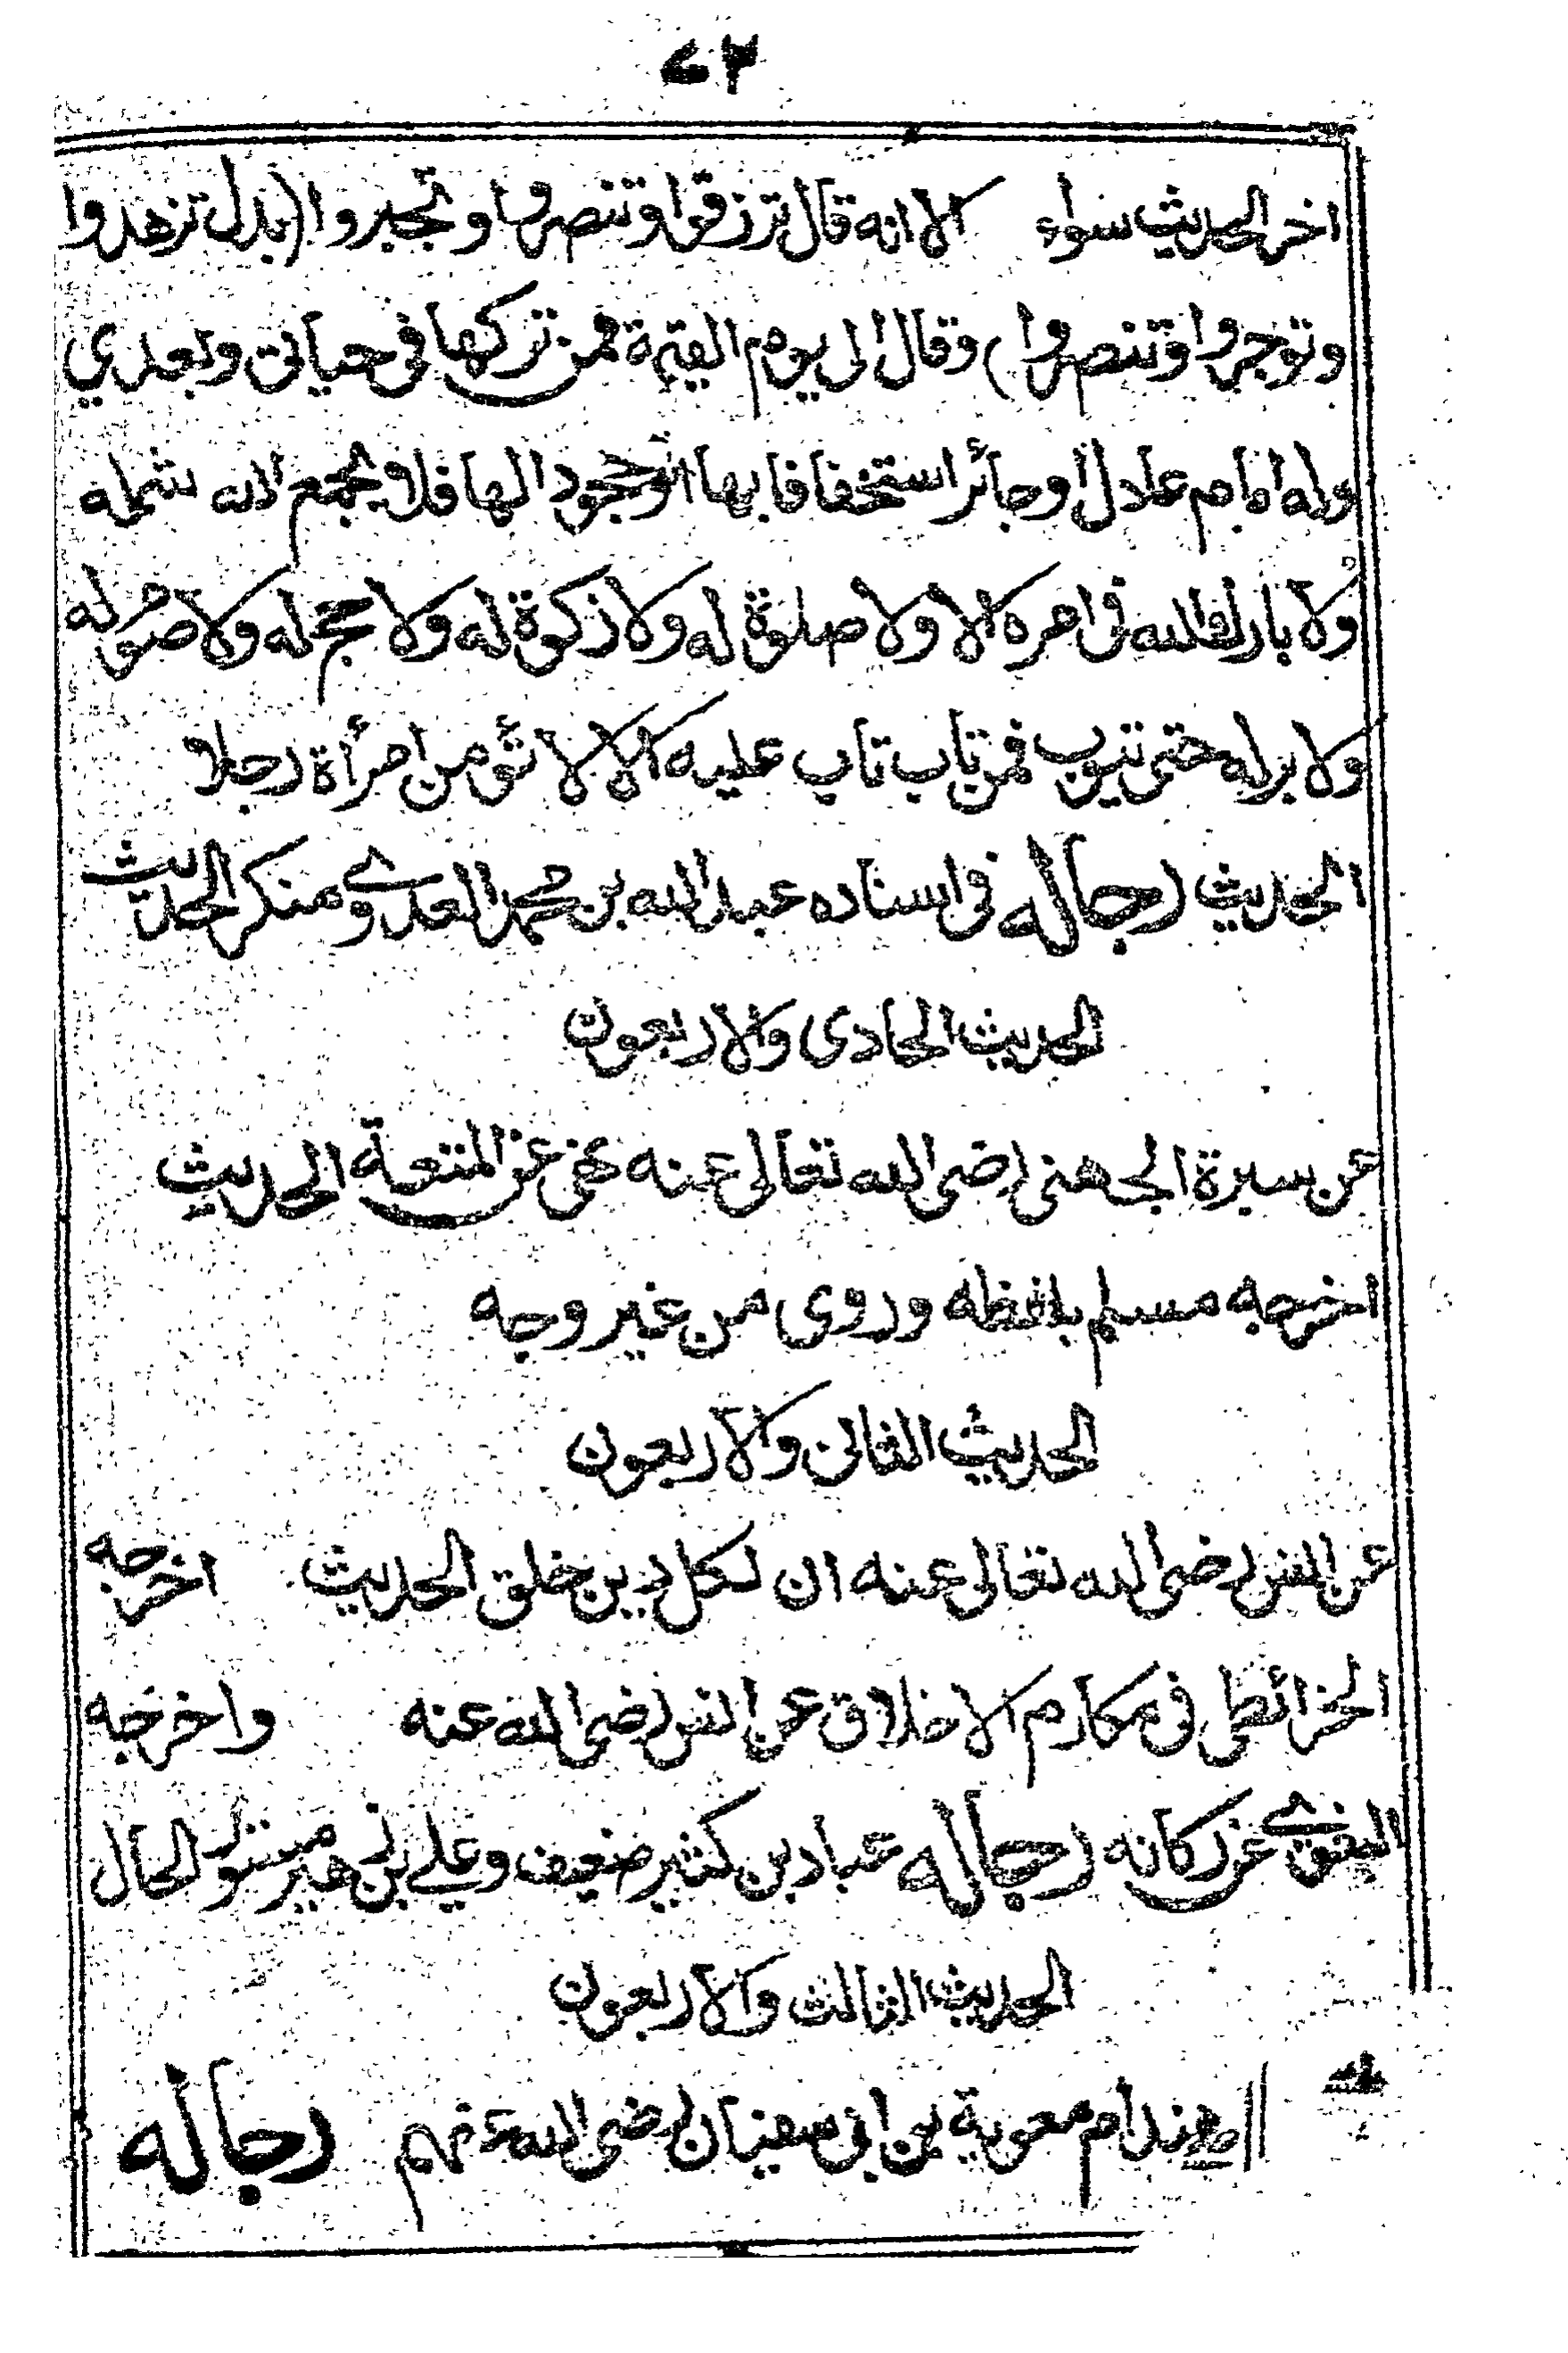 ٤٣
اخر الحديث سواء الا انه قال ترزقوا وتنصروا وتجبروا (بدل تزهدوا
وتوجروا وتنصروا) وقال الى يوم القيمة فمن تركها في حياتي وبعدي
وله امام عادل او جائر استخفافا بها او جحودا لها فلا يجمع الله شمله
ولا بارك الله في امره الا ولا صلوة له ولا زكوة له ولا حج له ولا صوم له
ولا بر له حتى يتوب فمن تاب تاب عليه الا لا تؤمن امرأة رجلا
الحديث رجاله في اسناده عبد الله بن محمد العدوي منكر الحديث
الحديث الحادي والاربعون
عن سبرة الجهني رضى الله تعالى عنه نهى عن المتعة الحديث
اخرجه مسلم بلفظه وروى من غير وجه
الحديث الثاني والاربعون
عن انس رضى الله تعالى عنه ان لكل دين خلق الحديث اخرجه
الخرائطي في مكارم الاخلاق عن انس رضى الله عنه واخرجه
البيهقي عن ركانه رجاله عباد بن كثير ضعيف وعلي بن مستور الحال
الحديث الثالث والاربعون
هند ام معوية بن ابي سفيان رضى الله عنهم رجاله